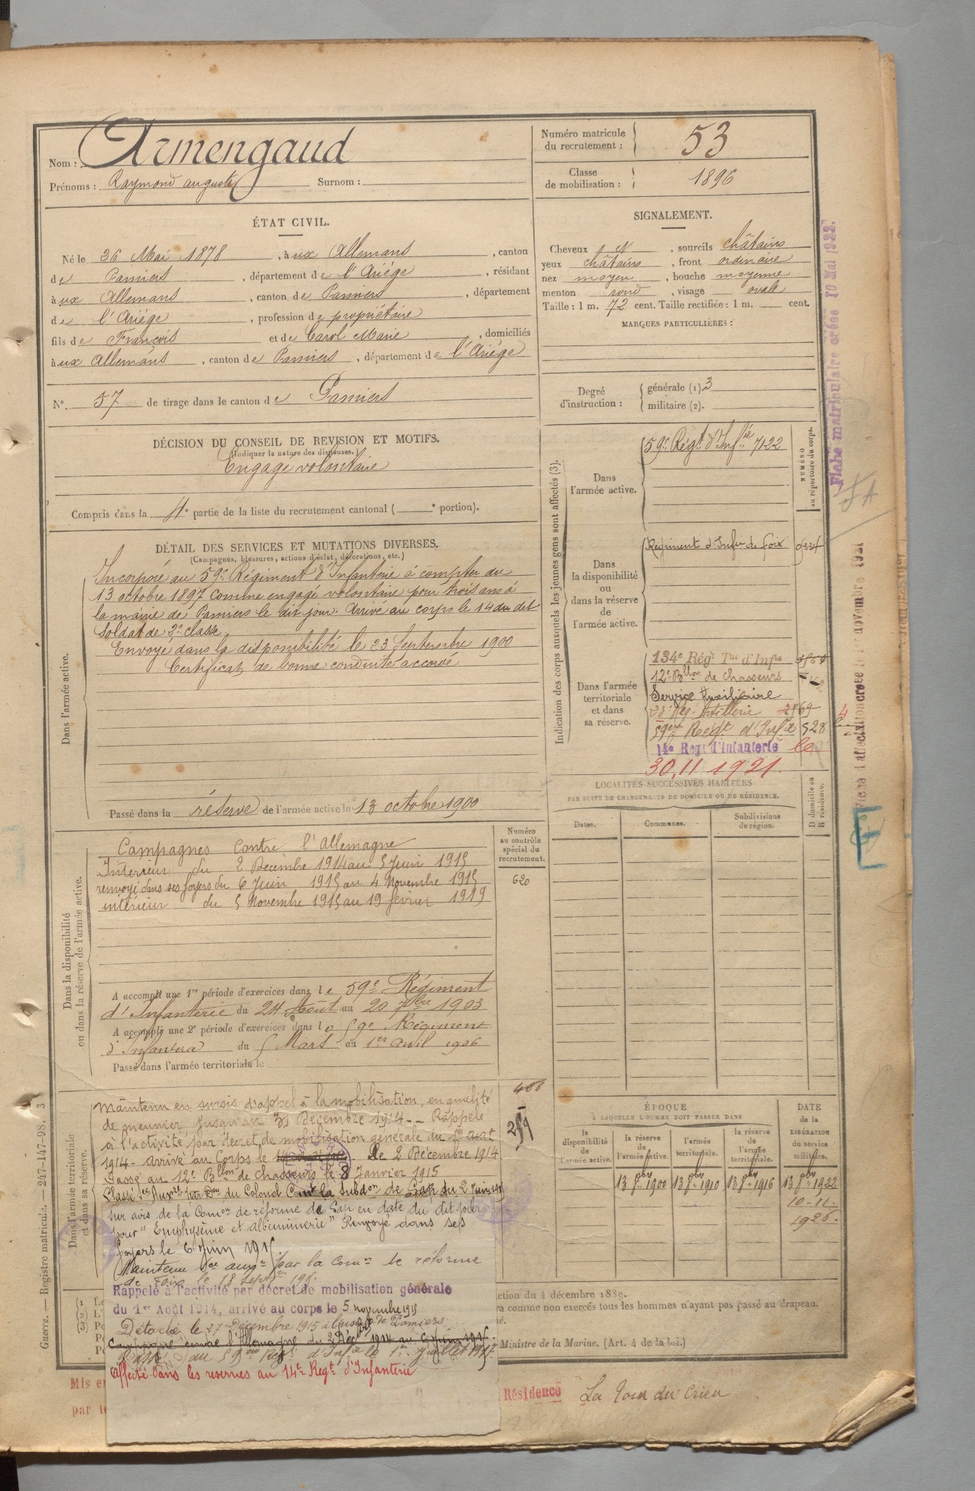 Nom : Armengaud
Prénoms : Raymond auguste Surnom :
Numéro matricule du recrutement : 53
Classe de mobilisation : 1896
ÉTAT CIVIL.
Né le 26 Mai 1878, à ux Allemans, canton
de Pamiers, département de l'Ariége, résidant
à ux Allemans, canton de Pamiers, département
de l'Ariége, profession de propriétaire
fils de François et de Carol Marie, domiciliés
à ux Allemans, canton de Pamiers, département de l'Ariége
N°. 57 de tirage dans le canton de Pamiers
SIGNALEMENT.
Cheveux et, sourcils châtains
yeux châtains, front ordinaire
nez moyen, bouche moyenne
menton rond, visage ovale
Taille : 1 m. 72 cent. Taille rectifiée : 1 m. cent.
MARQUES PARTICULIÈRES :
Degré d'instruction : générale (1). 3
militaire (2).
DÉCISION DU CONSEIL DE REVISION ET MOTIFS.
(Indiquer la nature des dispenses.)
Engagé volontaire
Compris dans la 4e partie de la liste du recrutement cantonal ( e portion).
DÉTAIL DES SERVICES ET MUTATIONS DIVERSES.
(Campagnes, blessures, actions d'éclat, décorations, etc.)
Dans l'armée active.
Incorporé au 59e Régiment d'Infanterie à compter du
13 octobre 1897 comme engagé volontaire pour trois ans à
la mairie de Pamiers le dit jour. Arrivé au corps le 14 du dit
Soldat de 2e classe
Envoyé dans la disponibilité le 23 Septembre 1900
Certificat de bonne conduite accordé
Passé dans la réserve de l'armée active le 13 octobre 1900
Indication des corps auxquels les jeunes gens sont affectés (3).
NUMÉRO au répertoire du corps.
Dans l'armée active.
59e Régt d'Infie 7122
Dans la disponibilité ou dans la réserve de l'armée active.
Régiment d'Infie de Foix
Dans l'armée territoriale et dans sa réserve.
134e Régt Tal d'Infie
12e Bllon de chasseurs
Service Auxiliaire
59me Régt d'Infie 528
14e Régt d'Infanterie
30.11 1921.
LOCALITÉS SUCCESSIVES HABITÉES
PAR SUITE DE CHANGEMENTS DE DOMICILE OU DE RÉSIDENCE.
Dates. Communes. Subdivisions de région. D domicile ou R résidence.
Dans la disponibilité ou dans la réserve de l'armée active.
Campagnes Contre l'Allemagne
Intérieur du 2 Décembre 1914 au 5 Juin 1915
renvoyé dans ses foyers du 6 Juin 1915 au 4 Novembre 1915
intérieur du 5 Novembre 1915 au 19 février 1919
Numéro au contrôle spécial du recrutement.
620
A accompli une 1re période d'exercices dans le 59e Régiment
d'Infanterie du 24 Août au 20 7bre 1903
A accompli une 2e période d'exercices dans le 59e Régiment
d'Infanterie du 5 Mars au 1er avril 1906
Passé dans l'armée territoriale le
Dans l'armée territoriale et dans sa réserve.
Maintenu en sursis d'appel à la mobilisation, en qualité
de meunier, jusqu'au 30 Décembre 1914. Rappelé
à l'activité par décret de mobilisation générale du 1er Août
1914. Arrivé au Corps le 2 Décembre 1914
Passé au 12e Bllon de chasseurs le 8 Janvier 1915
sur avis de la Comon de réforme de Gap en date du dit jour
pour "Emphysème et albuminerie" Renvoyé dans ses
foyers le 6 Juin 1915
Maintenu par la Comon de réforme
de Foix le 18 Septbre
Rappelé à l'activité par décret de mobilisation générale
du 1er Août 1914, arrivé au corps le 5 novembre 1915
Détaché le 27 Décembre 1915 à de Pamiers.
Campagne contre l'Allemagne du 2 Décbre 1914 au 6 Juin 1915
Passé au 59me Régt d'Infie le 1er Juillet 1917
Affecté dans les réserves au 14e Régt d'Infanterie
259
ÉPOQUE
À LAQUELLE L'HOMME DOIT PASSER DANS
la disponibilité de l'armée active. la réserve de l'armée active. l'armée territoriale. la réserve de l'armée territoriale.
DATE de la LIBÉRATION du service militaire.
13 8bre 1900 13 8bre 1910 13 8bre 1916 13 8bre 1922
10-11-1926.
Ministre de la Marine. (Art. 4 de la loi.)
Guerre. — Registre matricule. — 247-147-98.
Résidence La Tour du Crieu
Fiche matriculaire créée 10 Mai 1922.